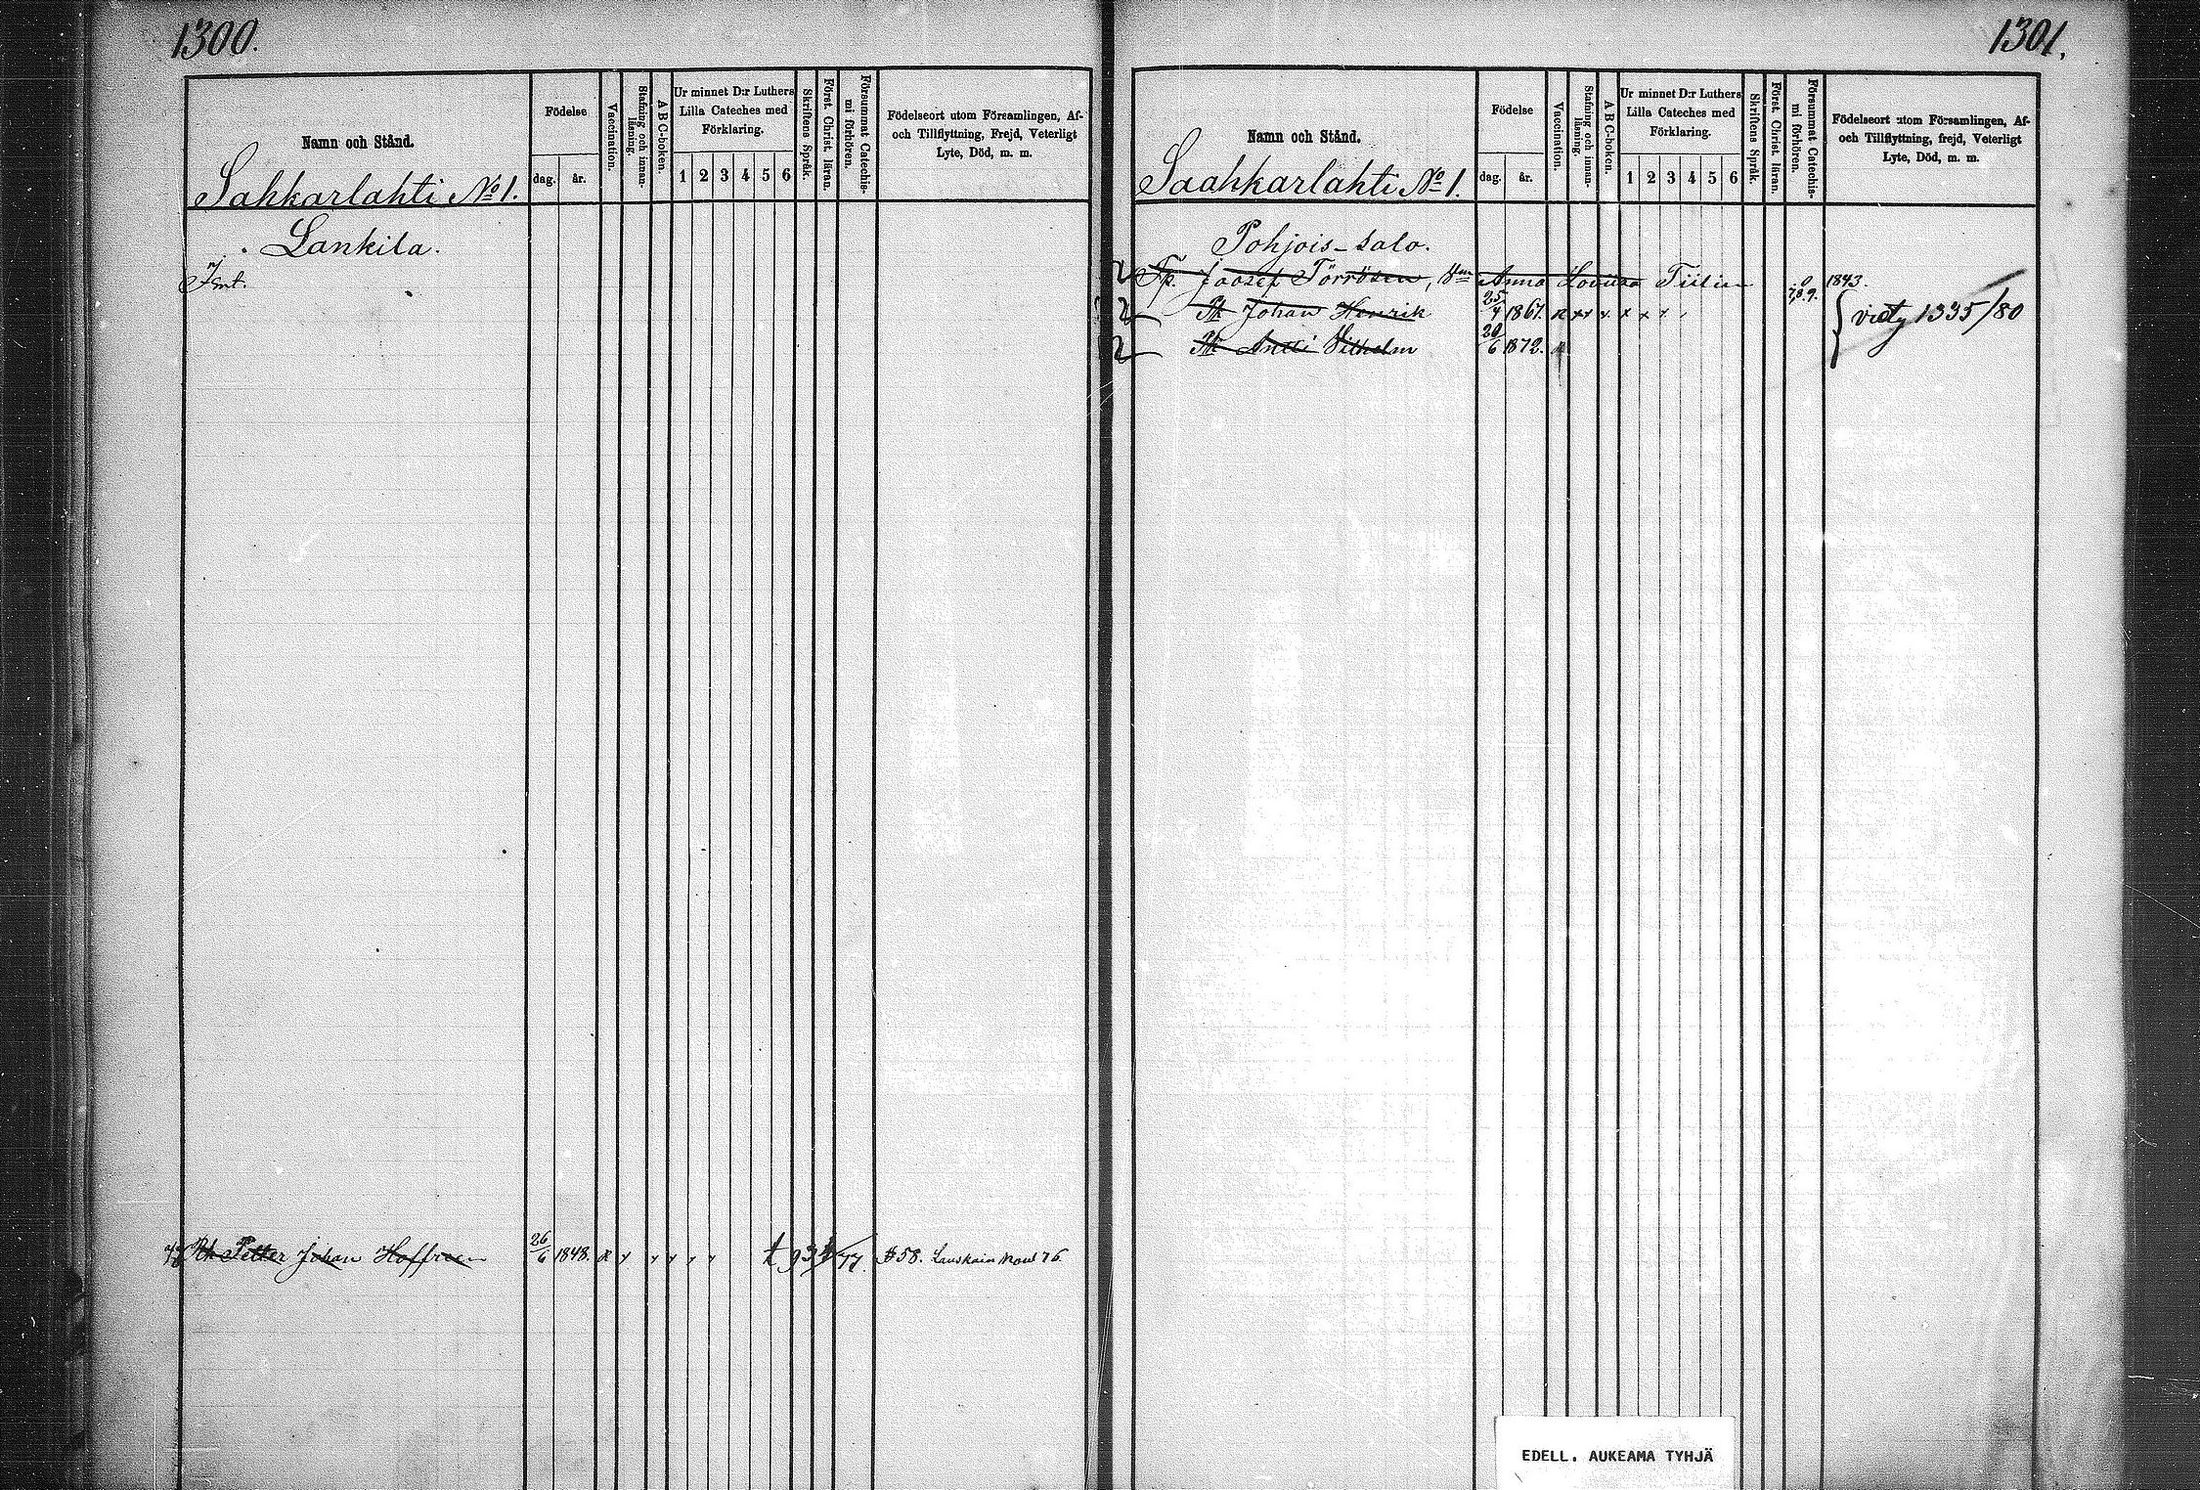 1300.
Namn och Stånd.
Födelse
dag.
år.
Vaccination.
Stafning och innan-
läsning.
ABC-boken.
Ur minnet D:r Luthers
Lilla Cateches med
Förklaring.
1 2 3 4 5 6
Skriftens Språk.
Först. Christ. läran.
Försummat Catechis-
mi förhören.
Födelseort utom Församlingen, Af-
och Tillflyttning, Frejd, Veterligt
Lyte, Död, m. m.
Sahkarlahti No 1.
Lankila.
Petter Johan Hoffreen 26/6 1848.
58. 76.
1301.
Namn och Stånd.
Födelse
dag.
år.
Vaccination.
Stafning och innan-
läsning.
ABC-boken.
Ur minnet D:r Luthers
Lilla Cateches med
Förklaring.
1 2 3 4 5 6
Skriftens Språk.
Först. Christ. läran.
Försummat Catechis-
mi förhören.
Födelseort utom Församlingen, Af-
och Tillflyttning, frejd, Veterligt
Lyte, Död, m. m.
Saahkarlahti No 1.
Pohjois-salo.
Joosef Törrösen, Anna Loviisa Tiilin 1843.
Johan Henrik 25/4 1867. 7,8,9.
1335/80
Antti Vilhelm 20/6 1872.
EDELL. AUKEAMA TYHJÄ